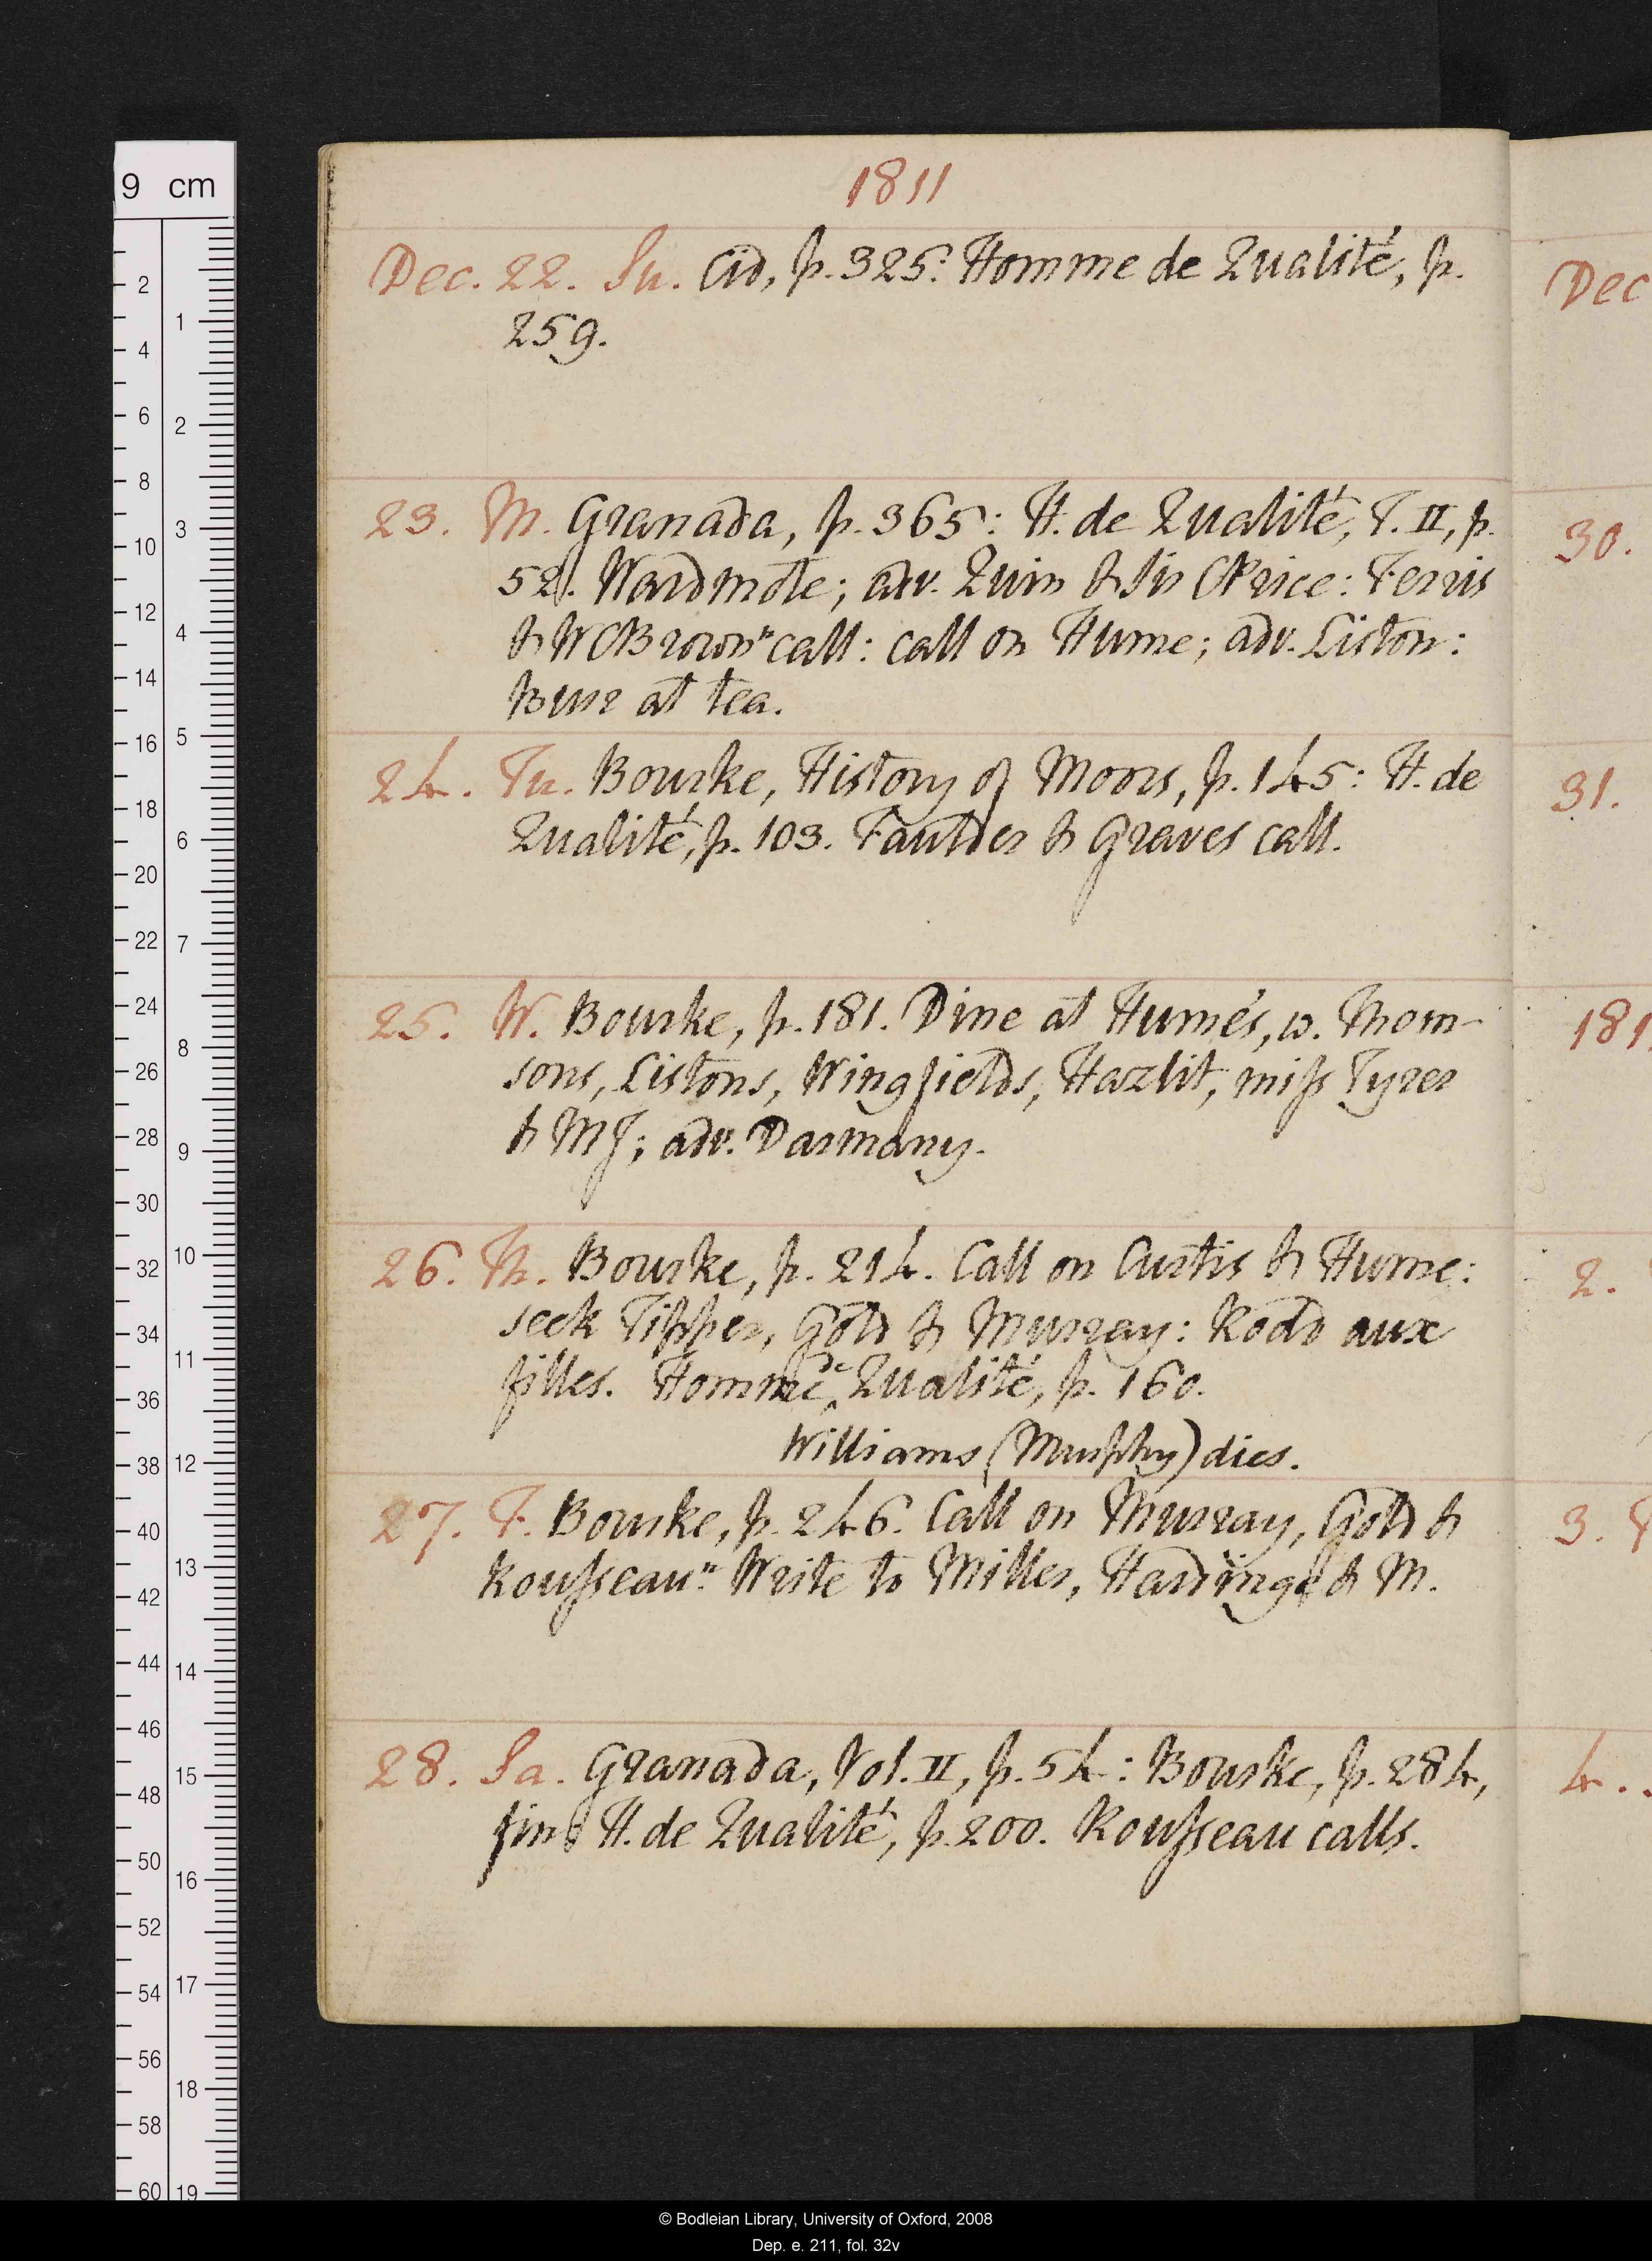 1811
Dec. 22. Su. Cid, p. 325: Homme de Qualité, p.
259.
23. M. Granada, p. 365: H. de Qualité, T. II, p.
52. Wardmote; adv. Quin & Sir C Price: Ferris
& W C Brown n call: call on Hume; adv. Liston:
Burr at tea.
24. Tu. Bourke, History of Moors, p. 145: H. de
Qualité, p. 103. Faulder & Graves call.
25. W. Bourke, p. 181. Dine at Hume's, w. Thom-
sons, Listons, Wingfields, Hazlit, miss Tyrer
& MJ; adv. Darmany.
26. Th. Bourke, p. 214. Call on Curtis & Hume:
seek Tipper, Gold & Murray: Rodd aux
filles. Homme de Qualité, p. 160.
Williams (Murphy) dies.
27. F. Bourke, p. 246. Call on Murray, Gold &
Rousseau n. Write to Miller, Hardinge & M.
28. Sa. Granada, Vol. II, p. 54: Bourke, p. 284,
fin. H. de Qualité, p. 200. Rousseau calls.
Dec
30.
31.
181
2.
3.
4.
9 cm
2
4
6
8
10
12
14
16
18
20
22
24
26
28
30
32
34
36
38
40
42
44
46
48
50
52
54
56
58
60
1
2
3
4
5
6
7
8
9
10
11
12
13
14
15
16
17
18
19
© Bodleian Library, University of Oxford, 2008
Dep. e. 211, fol. 32v